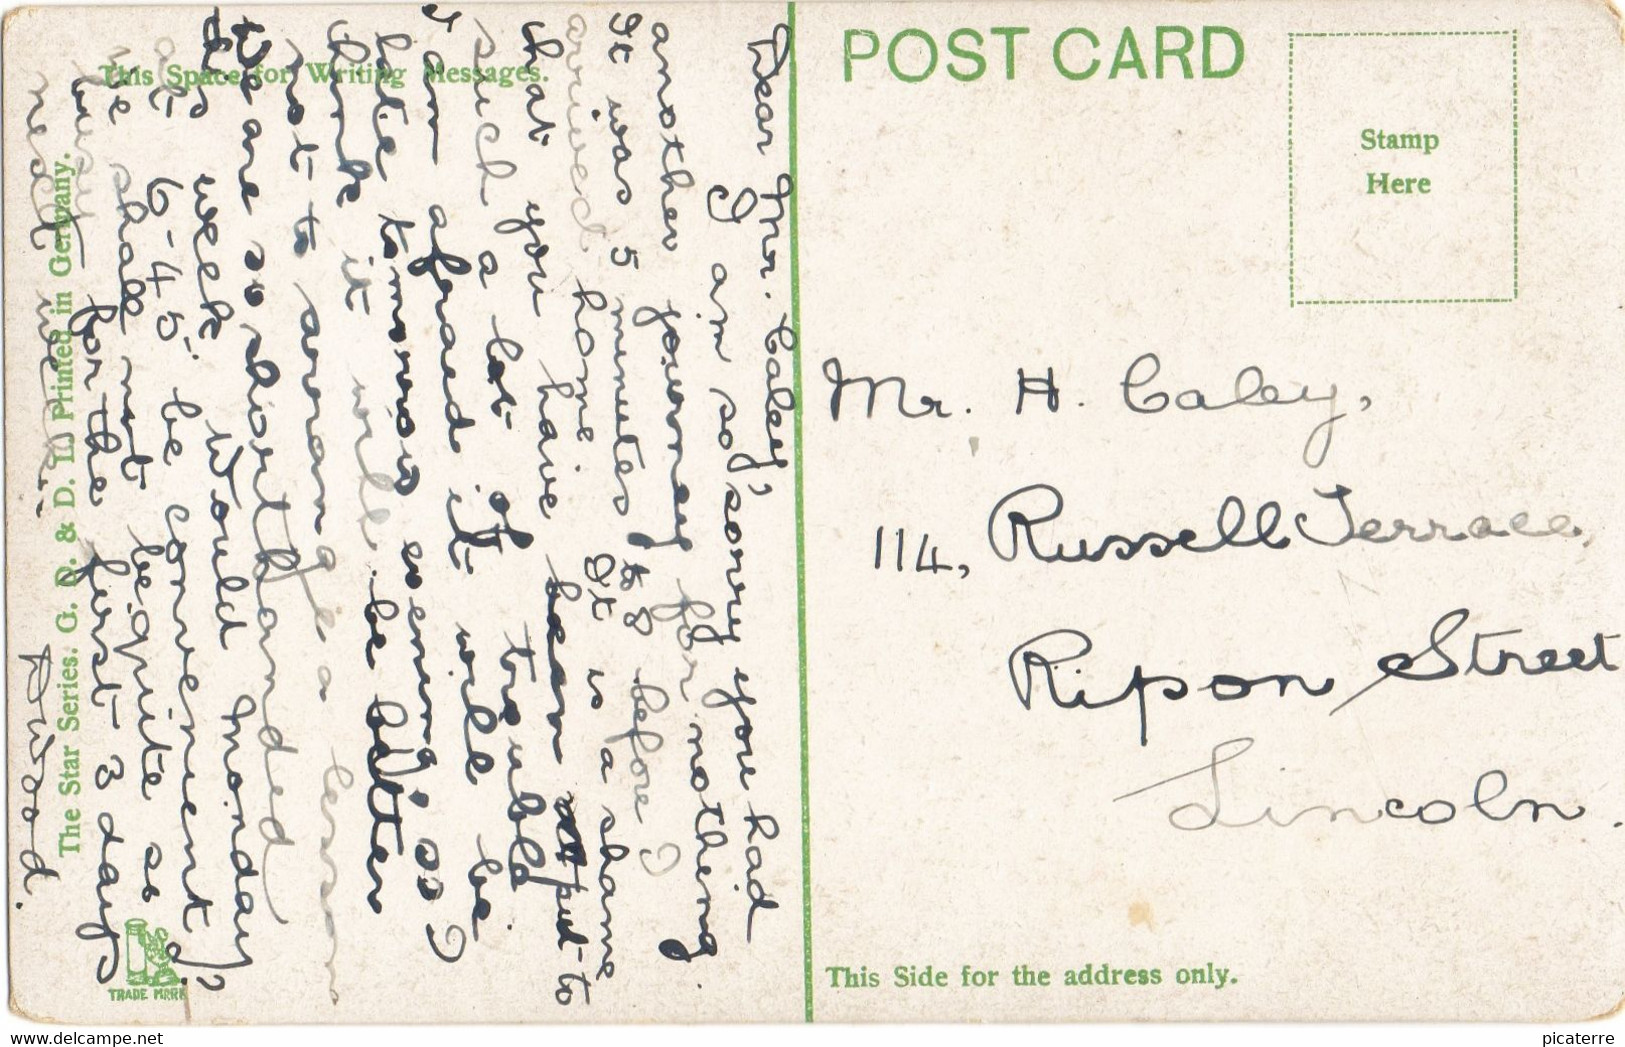 POST CARD
Stamp
Here
This Space for Writing Messages.
Dear Mr. Caley,
I am so sorry you had
another journey for nothing.
It was 5 minutes to 8 before I
arrived home. It is a shame
that you have been put to
such a lot of trouble
I am afraid it will be
late tomorrow evening so I
think it will be better
not to arrange a lesson
We are so shorthanded
this week. Would Monday,
at 6-45 be convenient,
we shall not be quite so
busy for the first 3 days
next week.
D Wood.
Mr. H. Caley,
114, Russell Terrace,
Ripon Street
Lincoln.
The Star Series. G. D. & D. L. Printed in Germany.
TRADE MARK
This Side for the address only.
www.delcampe.net
picaterre